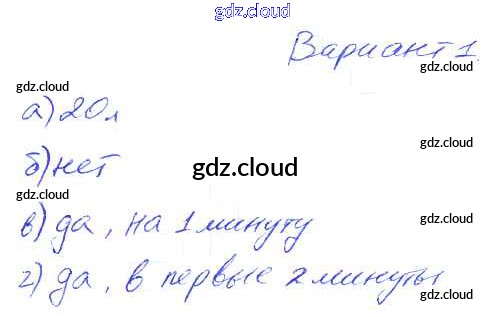 gdz.cloud
Вариант 1.
gdz.cloud
gdz.cloud
а) 20 л
gdz.cloud
б) нет
gdz.cloud
gdz.cloud
в) да, на 1 минуту
gdz.cloud
г) да, в первые 2 минуты
gdz.cloud